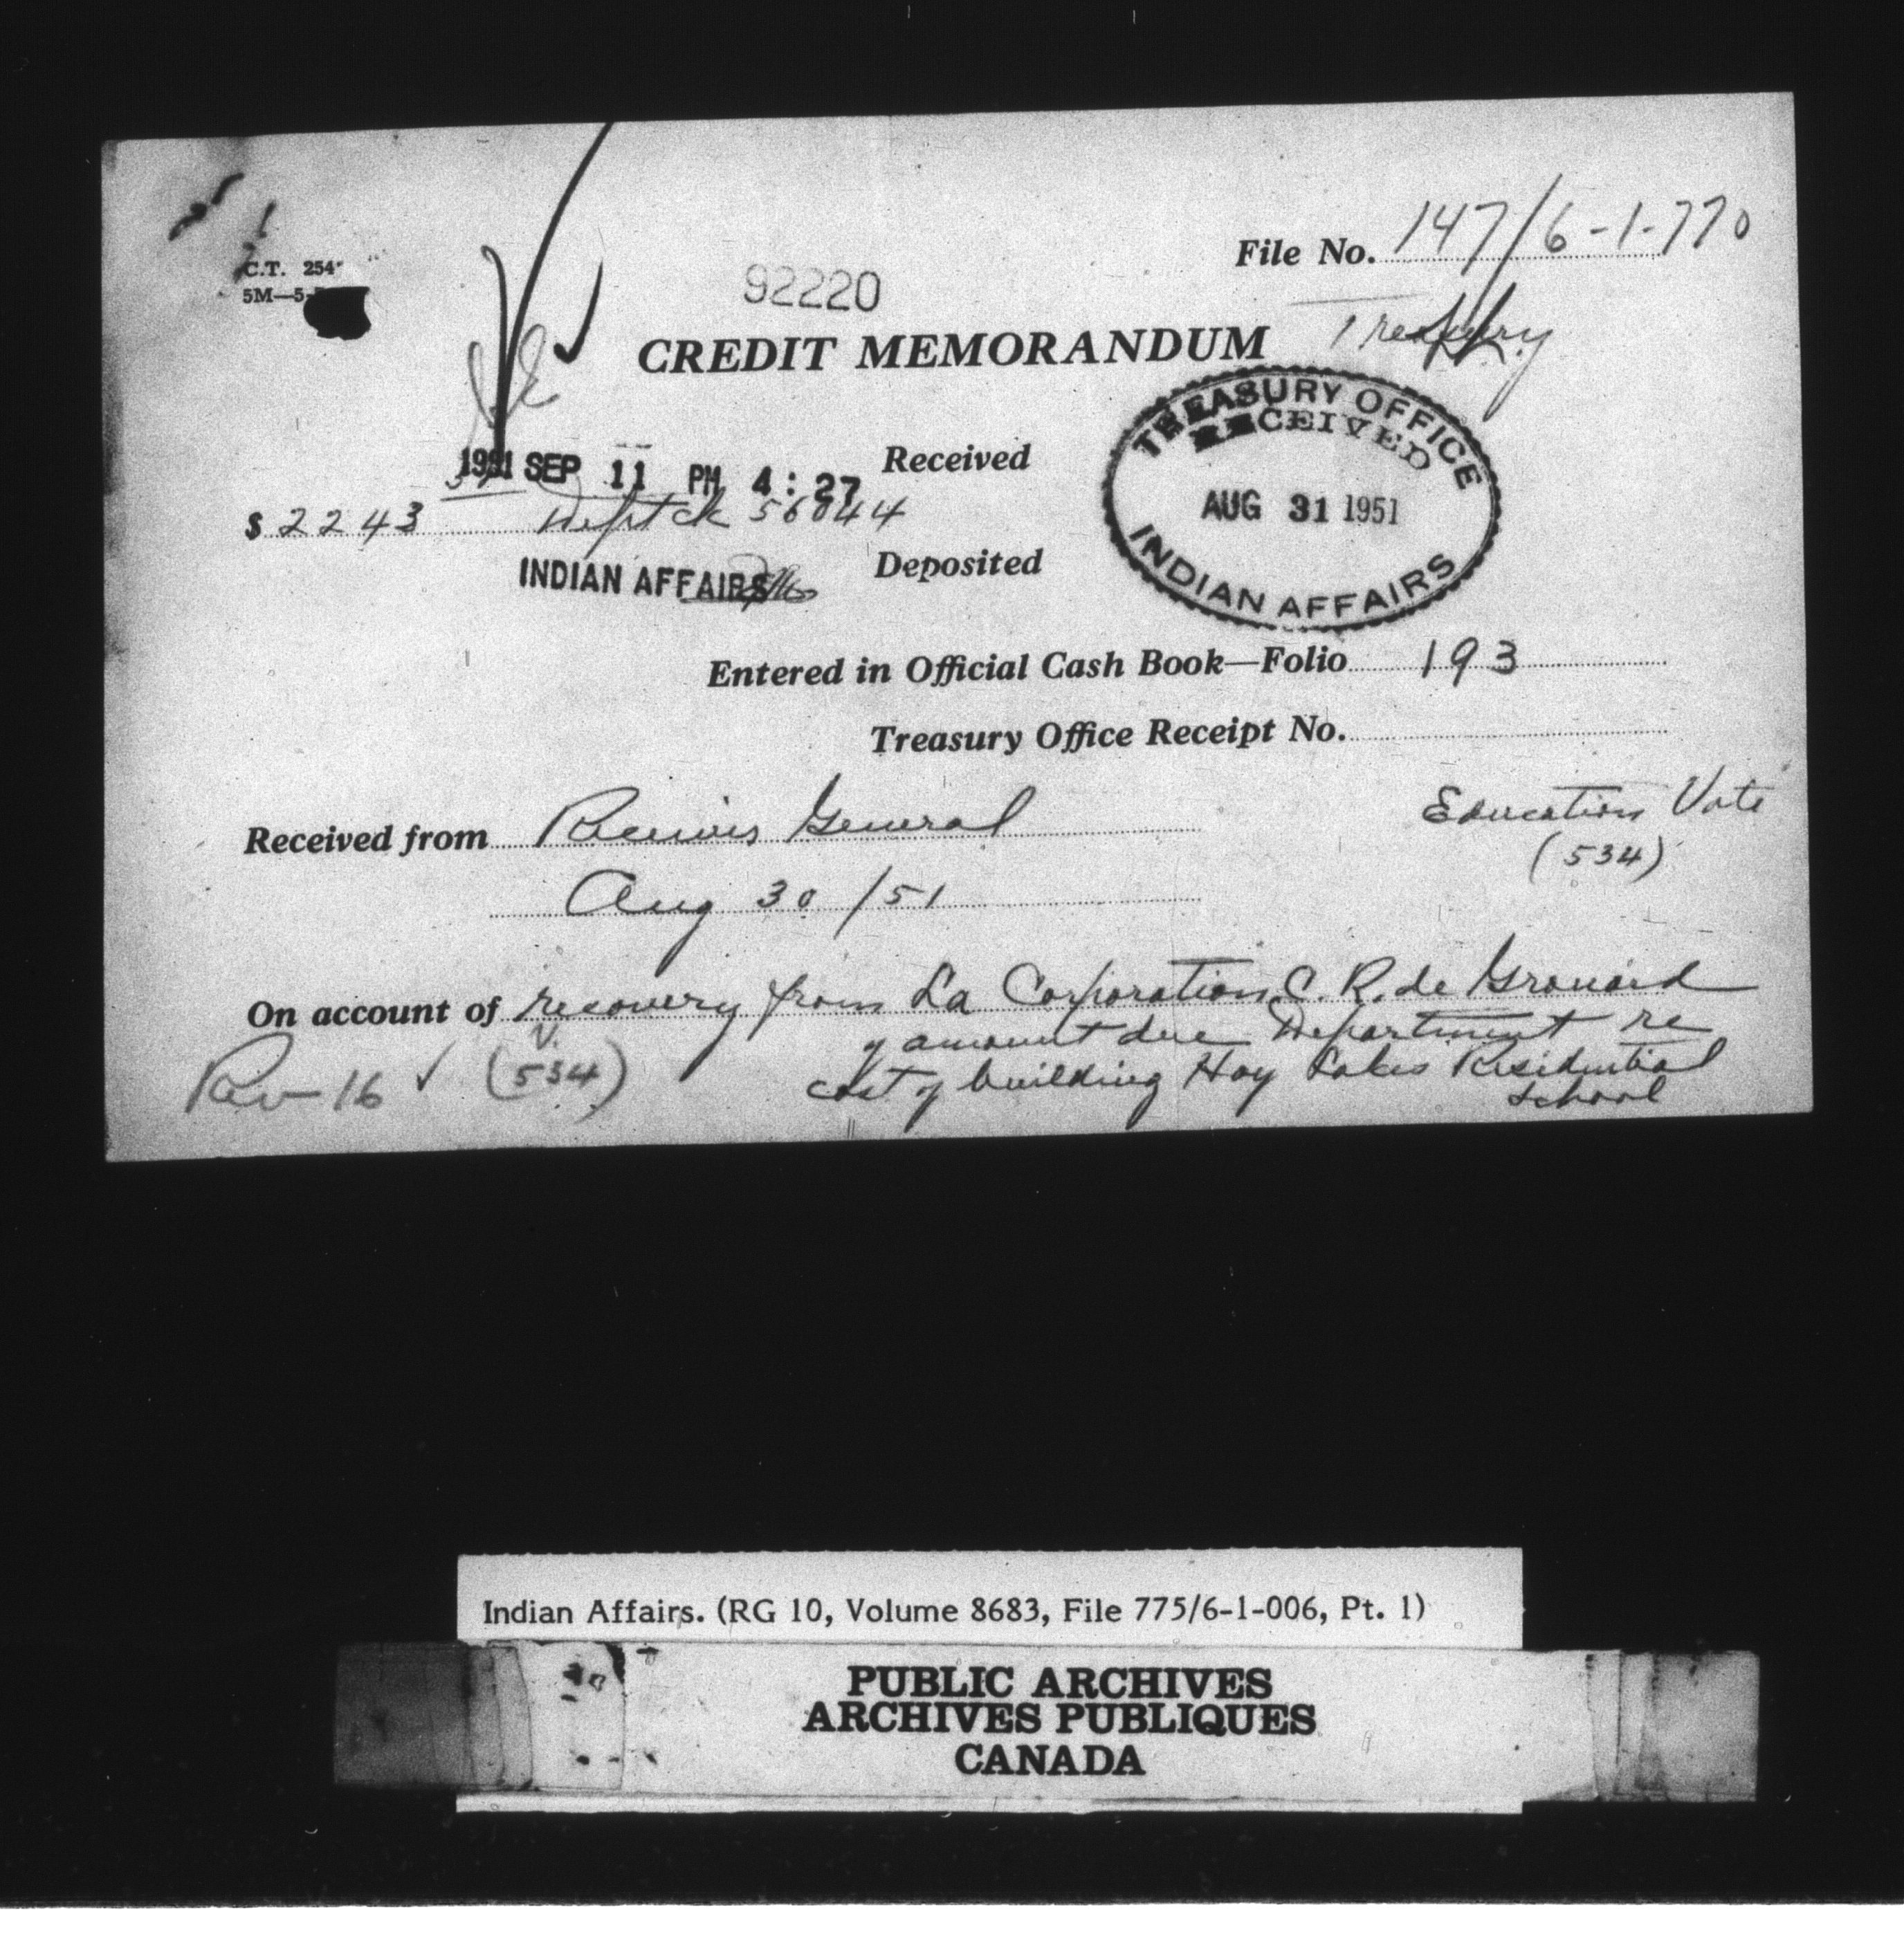 C.T. 254
5M—5-
File No. 147/6-1-770
92220
Treasury
CREDIT MEMORANDUM
TREASURY OFFICE
RECEIVED
AUG 31 1951
INDIAN AFFAIRS
1951 SEP 11 PM 4:27
Received
$ 2243 Dept ck 56044
INDIAN AFFAIRS
Deposited
Entered in Official Cash Book—Folio 193
Treasury Office Receipt No.
Received from Receiver General
Education Vote
(534)
Aug 30/51
On account of recovery from La Corporation C. R. de Grouard
of amount due Department re
cost of building Hay Lakes Residential
School
Rev-16 ✓ (534)
Indian Affairs. (RG 10, Volume 8683, File 775/6-1-006, Pt. 1)
PUBLIC ARCHIVES
ARCHIVES PUBLIQUES
CANADA